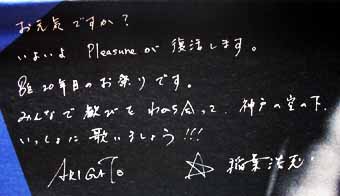 お元気ですか?
いよいよ Pleasureが 復活します。
B'z 20年目のお祭りです。
みんなで歓びをわかち合って、神戸の空の下、
いっしょに歌いましょう!!!
ARIGATO ☆ 稲葉浩志